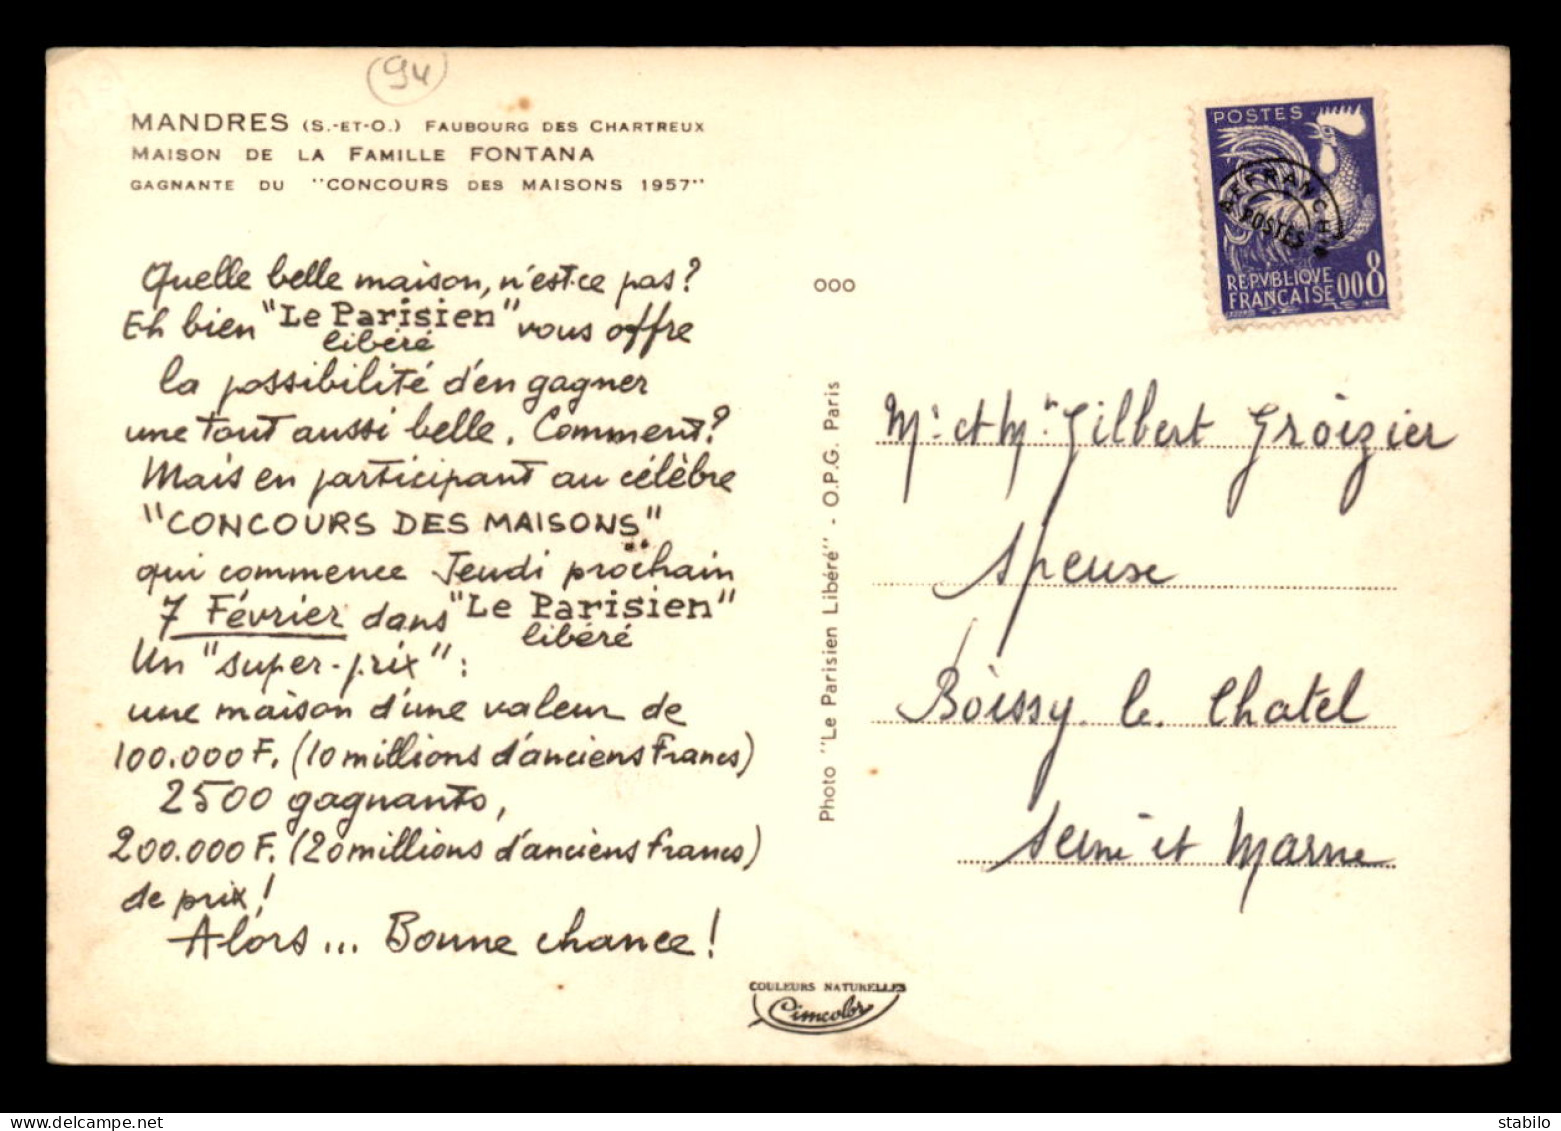 94
MANDRES (S.-ET-O.) FAUBOURG DES CHARTREUX
MAISON DE LA FAMILLE FONTANA
GAGNANTE DU "CONCOURS DES MAISONS 1957"
Quelle belle maison, n'est-ce pas?
Eh bien "Le Parisien libéré" vous offre
la possibilité d'en gagner
une tout aussi belle. Comment?
Mais en participant au célèbre
"CONCOURS DES MAISONS"
qui commence Jeudi prochain
7 Février dans "Le Parisien libéré"
Un "super-prix":
une maison d'une valeur de
100.000 F. (10 millions d'anciens Francs)
2500 gagnants,
200.000 F. (20 millions d'anciens Francs)
de prix!
Alors... Bonne chance!
OOO
Photo "Le Parisien Libéré" - O.P.G. Paris
COULEURS NATURELLES
Cimcolor
POSTES
AFFRANCHts
POSTES
REPVBLIQVE
FRANCAISE 008
Mr et Mme Gilbert Groizier
Speuse
Boissy le Chatel
Seine et Marne
www.delcampe.net
stabilo